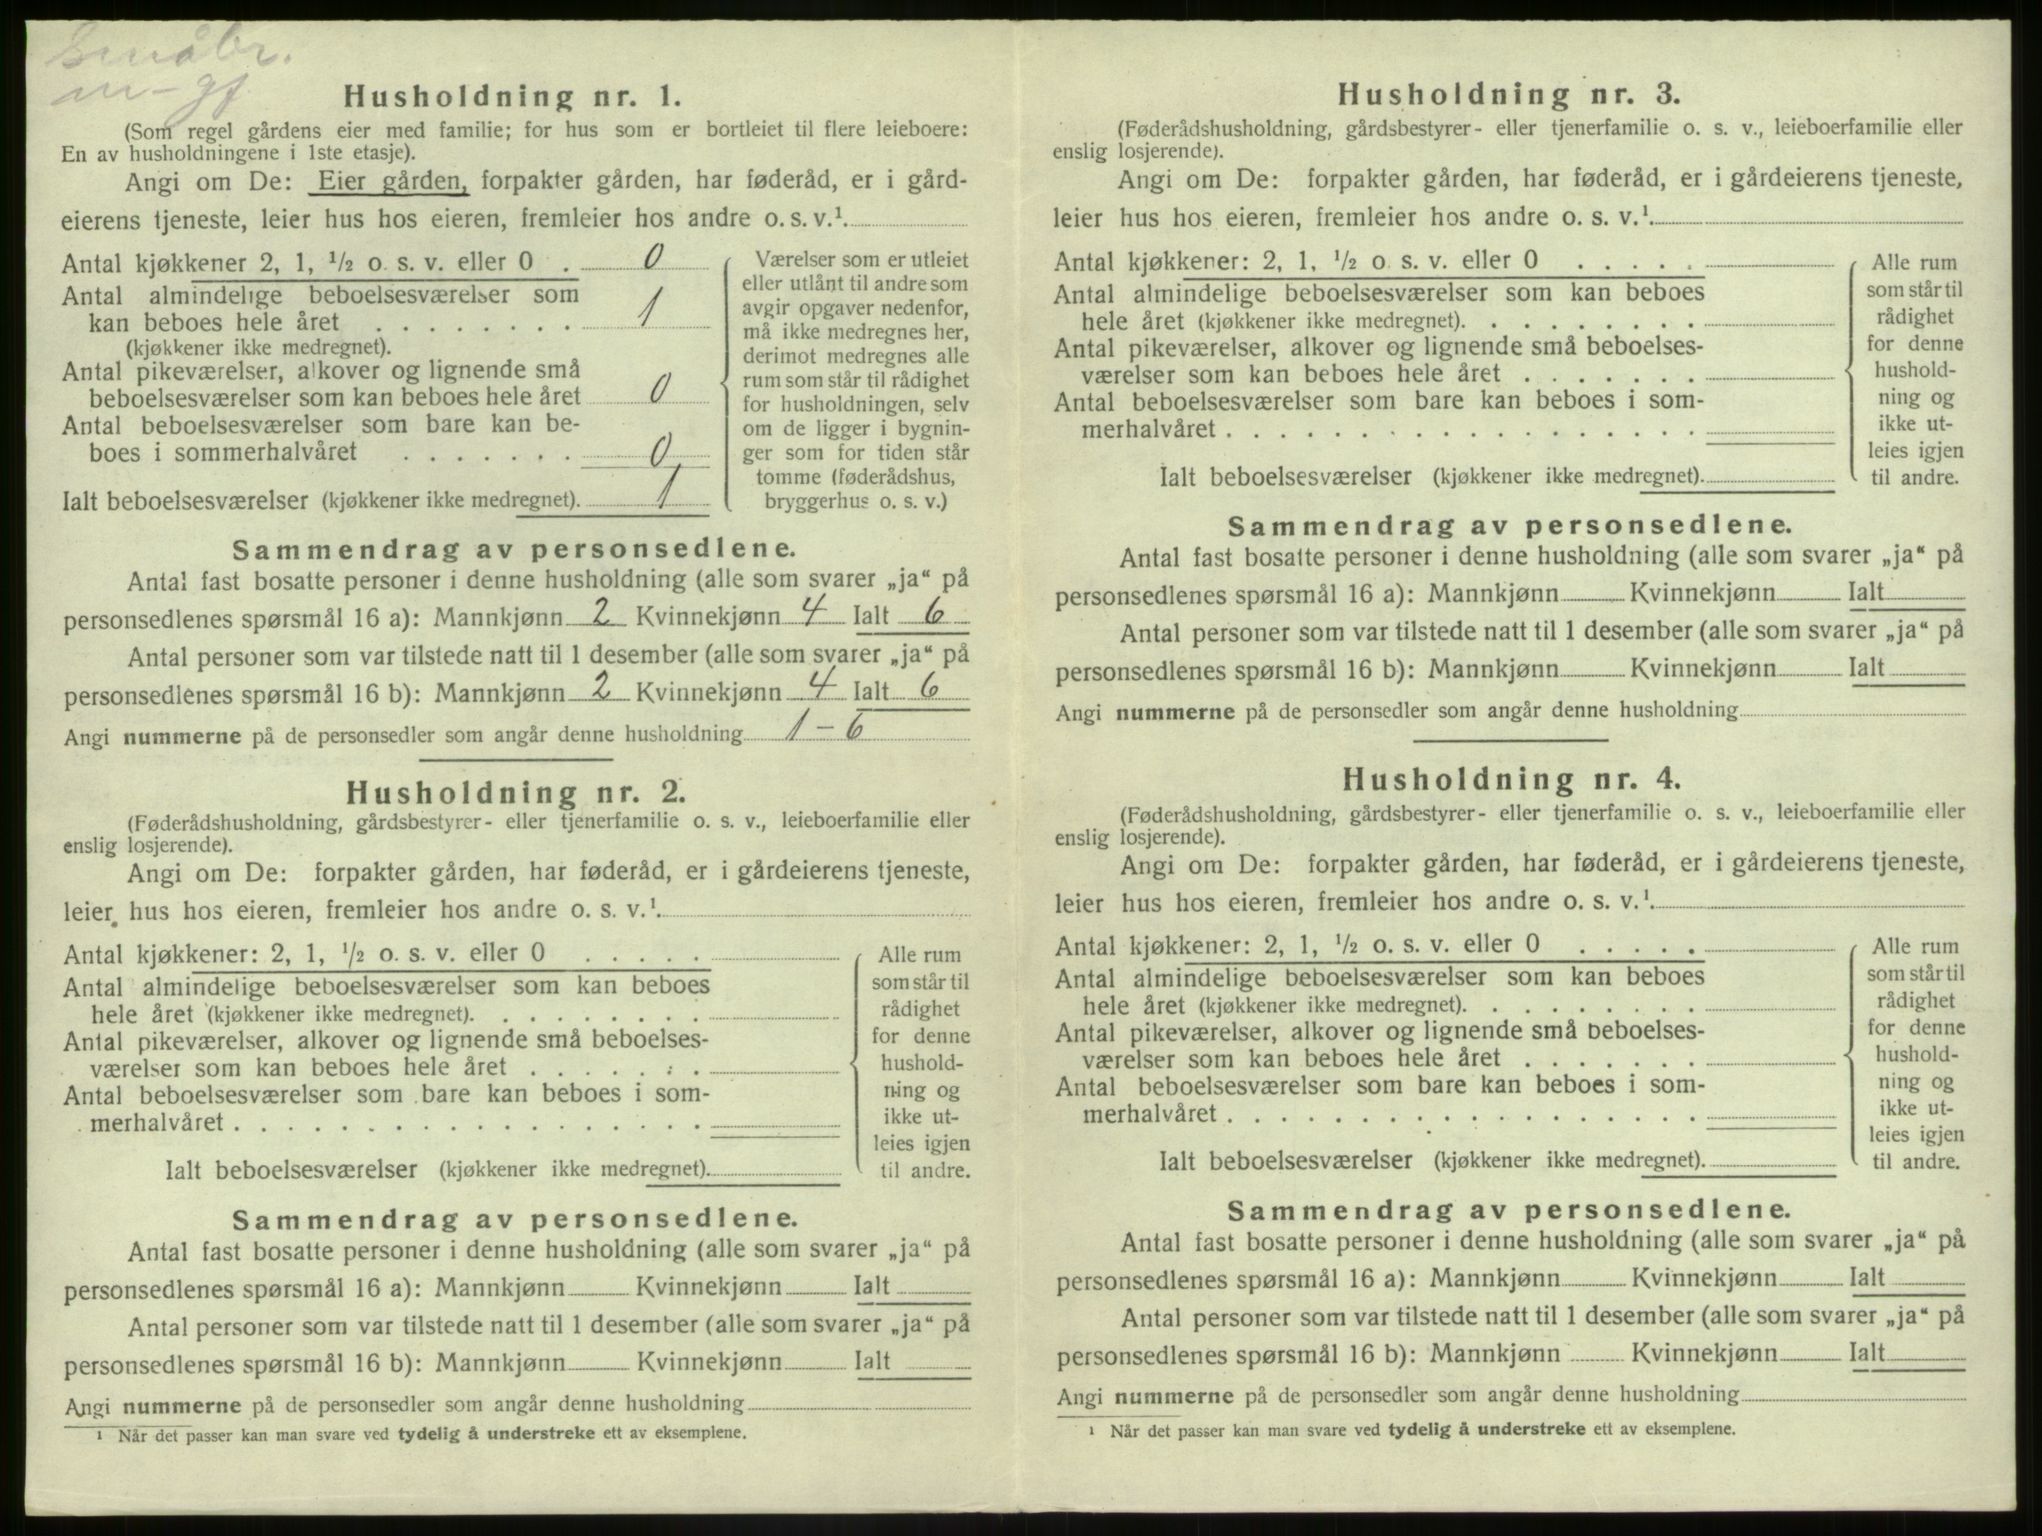 Småbr.
m-gf
Husholdning nr. 1.
(Som regel gårdens eier med familie; for hus som er bortleiet til flere leieboere:
En av husholdningene i 1ste etasje).
Angi om De: Eier gården, forpakter gården, har føderåd, er i gård-
eierens tjeneste, leier hus hos eieren, fremleier hos andre o. s. v.¹
Antal kjøkkener 2, 1, ½ o. s. v. eller 0 . 0
Antal almindelige beboelsesværelser som
kan beboes hele året . . . . . . . . 1
(kjøkkener ikke medregnet).
Antal pikeværelser, alkover og lignende små
beboelsesværelser som kan beboes hele året 0
Antal beboelsesværelser som bare kan be-
boes i sommerhalvåret . . . . . . . 0
Ialt beboelsesværelser (kjøkkener ikke medregnet). 1
Værelser som er utleiet
eller utlånt til andre som
avgir opgaver nedenfor,
må ikke medregnes her,
derimot medregnes alle
rum som står til rådighet
for husholdningen, selv
om de ligger i bygnin-
ger som for tiden står
tomme (føderådshus,
bryggerhus o. s. v.)
Sammendrag av personsedlene.
Antal fast bosatte personer i denne husholdning (alle som svarer „ja“ på
personsedlenes spørsmål 16 a): Mannkjønn 2 Kvinnekjønn 4 Ialt 6
Antal personer som var tilstede natt til 1 desember (alle som svarer „ja“ på
personsedlenes spørsmål 16 b): Mannkjønn 2 Kvinnekjønn 4 Ialt 6
Angi nummerne på de personsedler som angår denne husholdning 1 - 6
Husholdning nr. 2.
(Føderådshusholdning, gårdsbestyrer- eller tjenerfamilie o. s. v., leieboerfamilie eller
enslig losjerende).
Angi om De: forpakter gården, har føderåd, er i gårdeierens tjeneste,
leier hus hos eieren, fremleier hos andre o. s. v.¹
Antal kjøkkener: 2, 1, ½ o. s. v. eller 0 . . . . .
Antal almindelige beboelsesværelser som kan beboes
hele året (kjøkkener ikke medregnet). . . . . . . . .
Antal pikeværelser, alkover og lignende små beboelses-
værelser som kan beboes hele året . . . . . . .
Antal beboelsesværelser som bare kan beboes i som-
merhalvåret . . . . . . . . . . . . . . . . . .
Ialt beboelsesværelser (kjøkkener ikke medregnet).
Alle rum
som står til
rådighet
for denne
hushold-
ning og
ikke ut-
leies igjen
til andre.
Sammendrag av personsedlene.
Antal fast bosatte personer i denne husholdning (alle som svarer „ja“ på
personsedlenes spørsmål 16 a): Mannkjønn Kvinnekjønn Ialt
Antal personer som var tilstede natt til 1 desember (alle som svarer „ja“ på
personsedlenes spørsmål 16 b): Mannkjønn Kvinnekjønn Ialt
Angi nummerne på de personsedler som angår denne husholdning
¹ Når det passer kan man svare ved tydelig å understreke ett av eksemplene.
Husholdning nr. 3.
(Føderådshusholdning, gårdsbestyrer- eller tjenerfamilie o. s. v., leieboerfamilie eller
enslig losjerende).
Angi om De: forpakter gården, har føderåd, er i gårdeierens tjeneste,
leier hus hos eieren, fremleier hos andre o. s. v.¹
Antal kjøkkener: 2, 1, ½ o. s. v. eller 0 . . . . .
Antal almindelige beboelsesværelser som kan beboes
hele året (kjøkkener ikke medregnet). . . . . . . . .
Antal pikeværelser, alkover og lignende små beboelses-
værelser som kan beboes hele året . . . . . . .
Antal beboelsesværelser som bare kan beboes i som-
merhalvåret . . . . . . . . . . . . . . . . . .
Ialt beboelsesværelser (kjøkkener ikke medregnet).
Alle rum
som står til
rådighet
for denne
hushold-
ning og
ikke ut-
leies igjen
til andre.
Sammendrag av personsedlene.
Antal fast bosatte personer i denne husholdning (alle som svarer „ja“ på
personsedlenes spørsmål 16 a): Mannkjønn Kvinnekjønn Ialt
Antal personer som var tilstede natt til 1 desember (alle som svarer „ja“ på
personsedlenes spørsmål 16 b): Mannkjønn Kvinnekjønn Ialt
Angi nummerne på de personsedler som angår denne husholdning
Husholdning nr. 4.
(Føderådshusholdning, gårdsbestyrer- eller tjenerfamilie o. s. v., leieboerfamilie eller
enslig losjerende).
Angi om De: forpakter gården, har føderåd, er i gårdeierens tjeneste,
leier hus hos eieren, fremleier hos andre o. s. v.¹
Antal kjøkkener: 2, 1, ½ o. s. v. eller 0 . . . . .
Antal almindelige beboelsesværelser som kan beboes
hele året (kjøkkener ikke medregnet). . . . . . . . .
Antal pikeværelser, alkover og lignende små beboelses-
værelser som kan beboes hele året . . . . . . .
Antal beboelsesværelser som bare kan beboes i som-
merhalvåret . . . . . . . . . . . . . . . . . .
Ialt beboelsesværelser (kjøkkener ikke medregnet).
Alle rum
som står til
rådighet
for denne
hushold-
ning og
ikke ut-
leies igjen
til andre.
Sammendrag av personsedlene.
Antal fast bosatte personer i denne husholdning (alle som svarer „ja“ på
personsedlenes spørsmål 16 a): Mannkjønn Kvinnekjønn Ialt
Antal personer som var tilstede natt til 1 desember (alle som svarer „ja“ på
personsedlenes spørsmål 16 b): Mannkjønn Kvinnekjønn Ialt
Angi nummerne på de personsedler som angår denne husholdning
¹ Når det passer kan man svare ved tydelig å understreke ett av eksemplene.